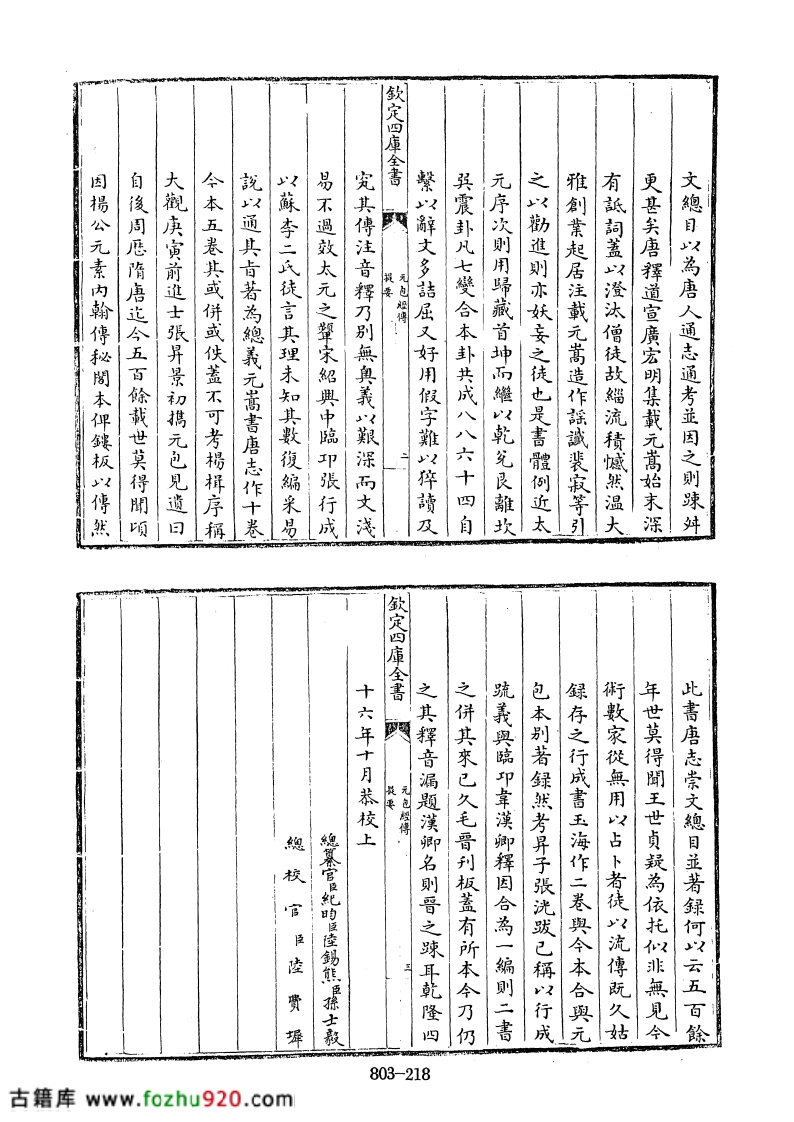 文總目以為唐人通志通考並因之則踈舛
更甚矣唐釋道宣廣宏明集載元嵩始末深
有詆詞蓋以澄汰僧徒故緇流積憾然温大
雅創業起居注載元嵩造作謡讖裴寂等引
之以勸進則亦妖妄之徒也是書體例近太
元序次則用歸藏首坤而繼以乾兌艮離坎
巽震卦凡七變合本卦共成八八六十四自
繫以辭文多詰屈又好用假字難以猝讀及
欽定四庫全書
元包經傳
提要
二
究其傳注音釋乃别無奥義以艱深而文淺
易不過效太元之顰宋紹興中臨卭張行成
以蘇李二氏徒言其理未知其數復編采易
說以通其肯著為總義元嵩書唐志作十卷
今本五卷其或併或佚蓋不可考楊楫序稱
大觀庚寅前進士張昇景初擕元包見遺曰
自後周歴隋唐迄今五百餘載世莫得聞頃
因楊公元素内翰傳秘閣本俾鏤板以傳然
此書唐志崇文總目並著録何以云五百餘
年世莫得聞王世貞疑為依托似非無見今
術數家從無用以占卜者徒以流傳既久姑
録存之行成書玉海作二卷與今本合與元
包本别著録然考昇子張洸跋已稱以行成
疏義與臨卭韋漢卿釋因合為一編則二書
之併其來已久毛晉刋板蓋有所本今乃仍
之其釋音漏題漢卿名則晉之踈耳乾隆四
欽定四庫全書
元包經傳
提要
三
十六年十月恭校上
總纂官臣紀昀臣陸錫熊臣孫士毅
總校官臣陸費墀
803-218
古籍库 www.fozhu920.com